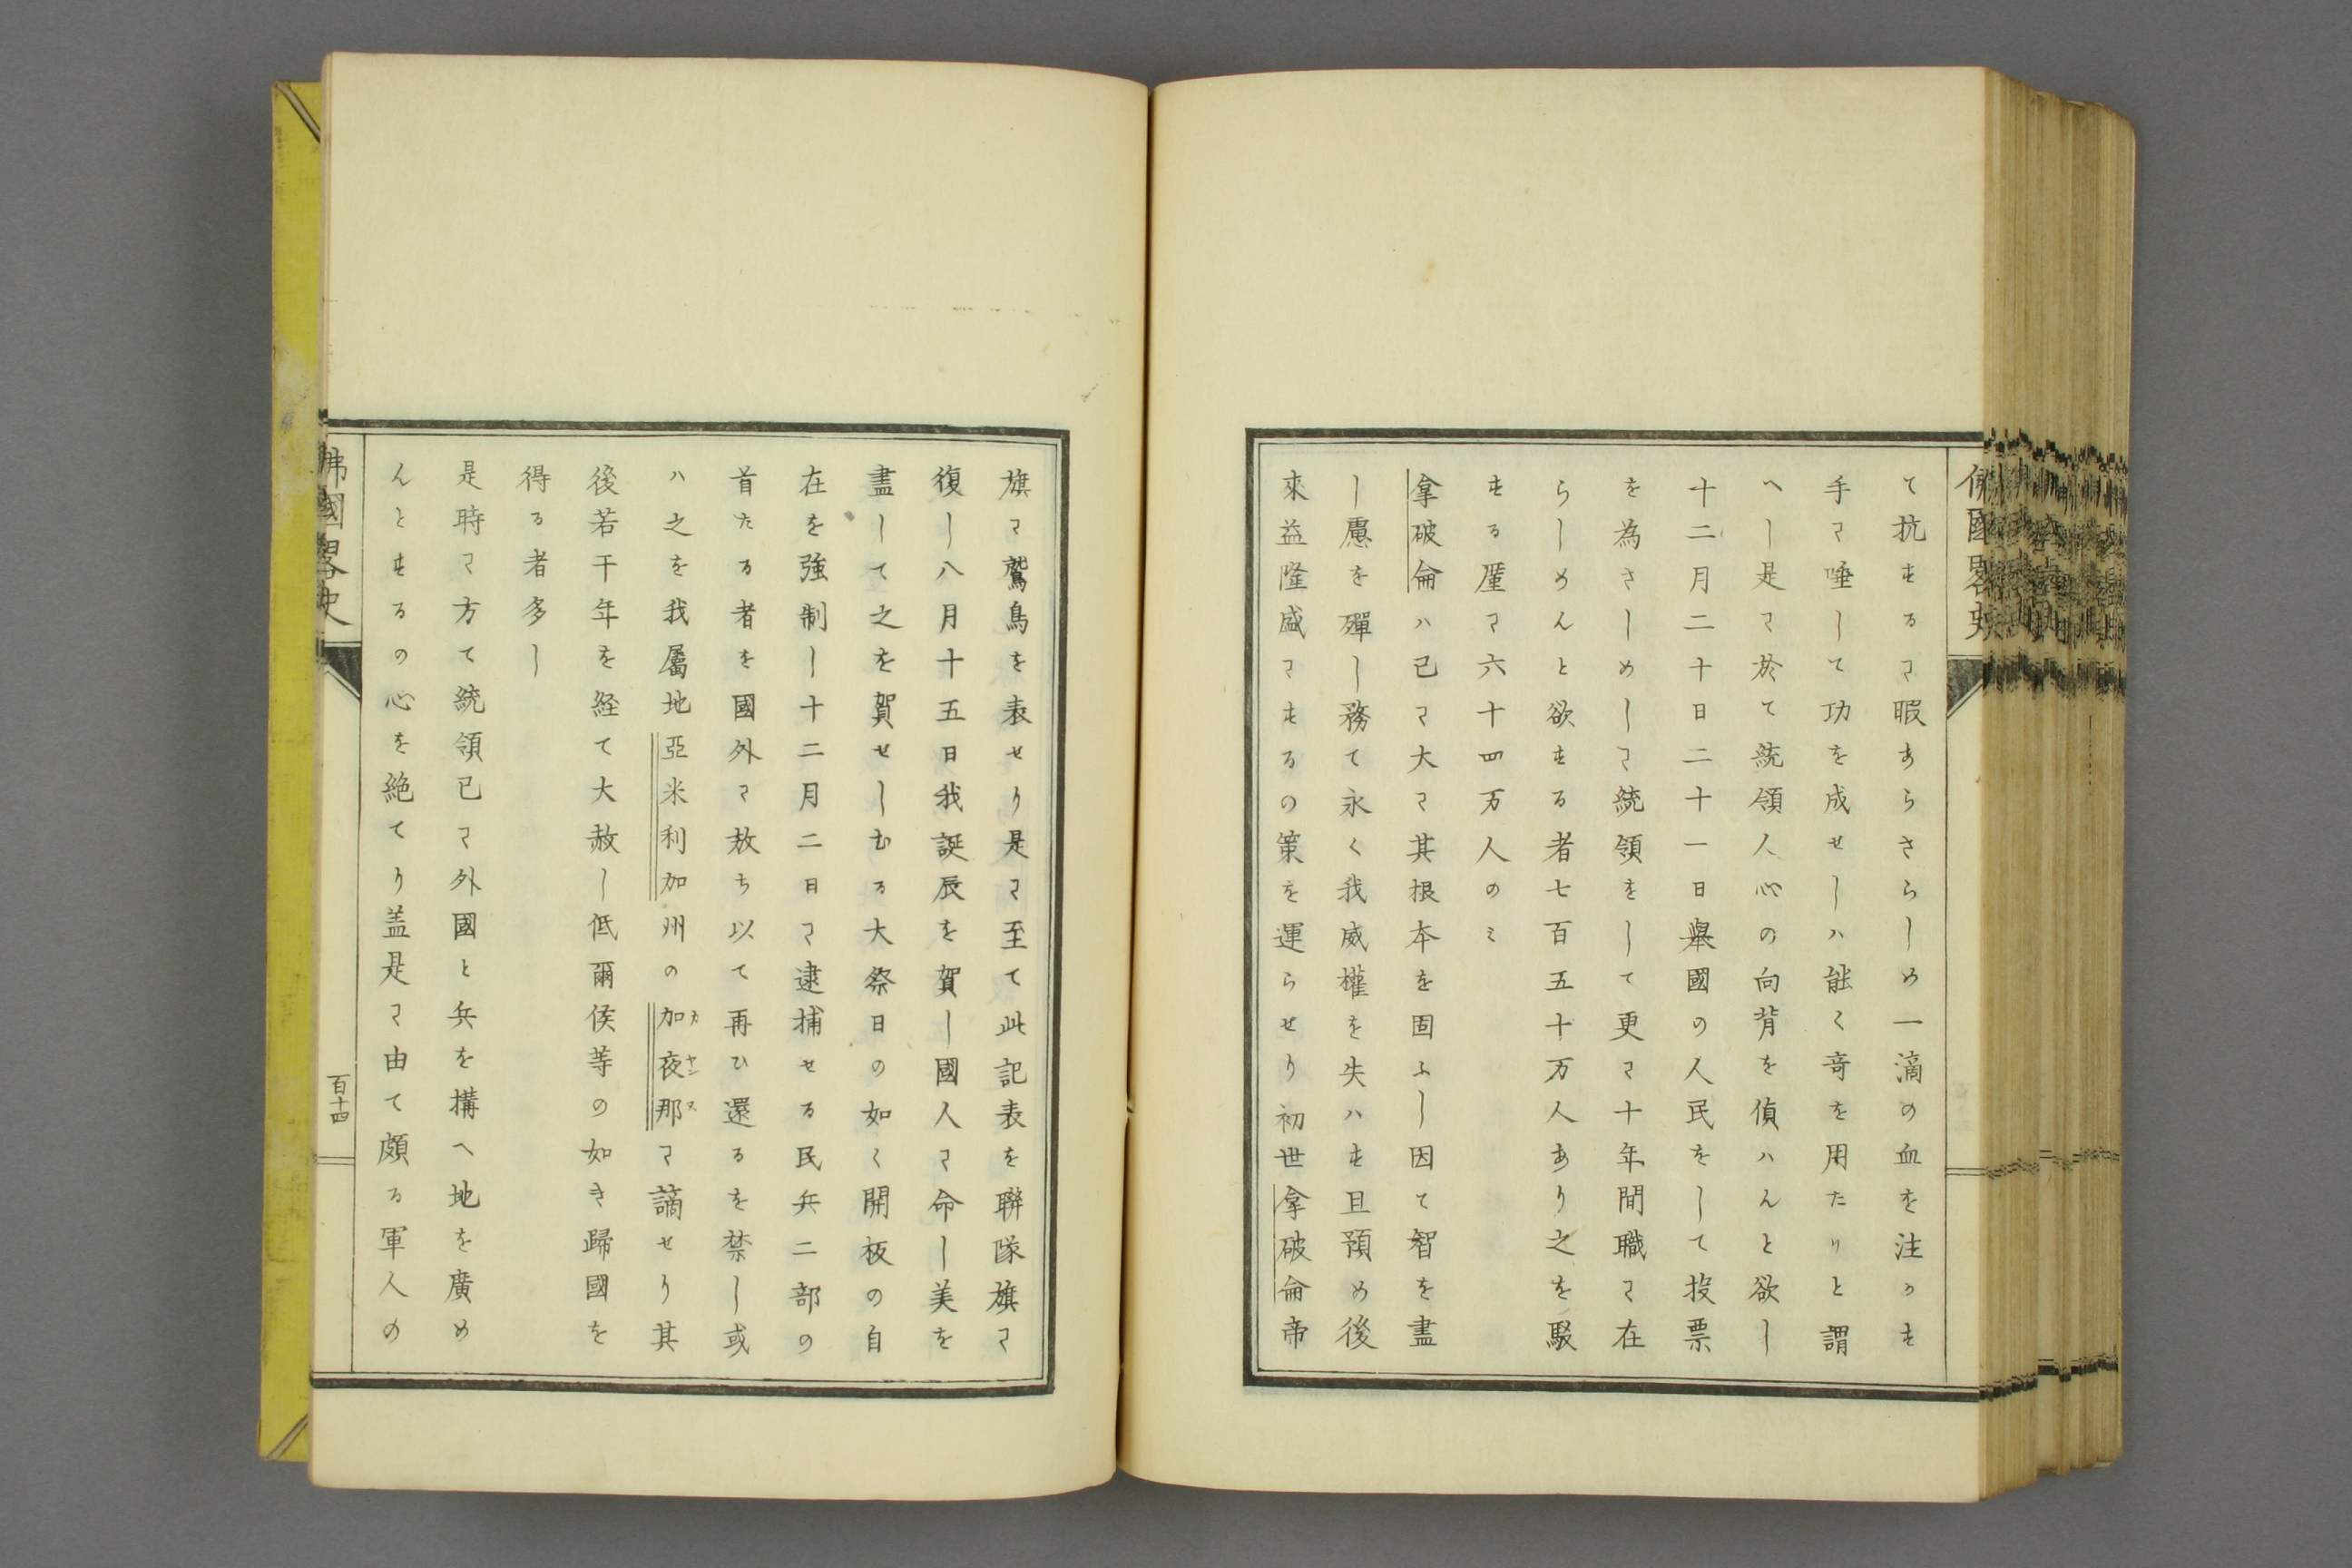 佛國畧史
て抗するに暇あらさらしめ一滴の血を注かす
手に唾して功を成せしハ能く竒を用たりと謂
へし是に於て統領人心の向背を偵ハんと欲し
十二月二十日二十一日舉國の人民をして投票
を為さしめしに統領をして更に十年間職に在
らしめんと欲する者七百五十万人あり之を駁
する厪に六十四万人のミ
拿破侖ハ已に大に其根本を固ふし因て智を盡
し慮を殫し務て永く我威權を失ハす且預め後
來益隆盛にするの策を運らせり初世拿破侖帝
旗に鷲鳥を表せり是に至て此記表を聯隊旗に
復し八月十五日我誕辰を賀し國人に命し美を
盡して之を賀せしむる大祭日の如く開板の自
在を強制し十二月二日に逮捕せる民兵二部の
首たる者を國外に放ち以て再ひ還るを禁し或
ハ之を我屬地亞米利加州の加夜那に謫せり其
カヤンヌ
後若干年を経て大赦し低爾侯等の如き歸國を
得る者多し
是時に方て統領已に外國と兵を搆へ地を廣め
んとするの心を絶てり盖是に由て頗る軍人の
佛國畧史
百十四